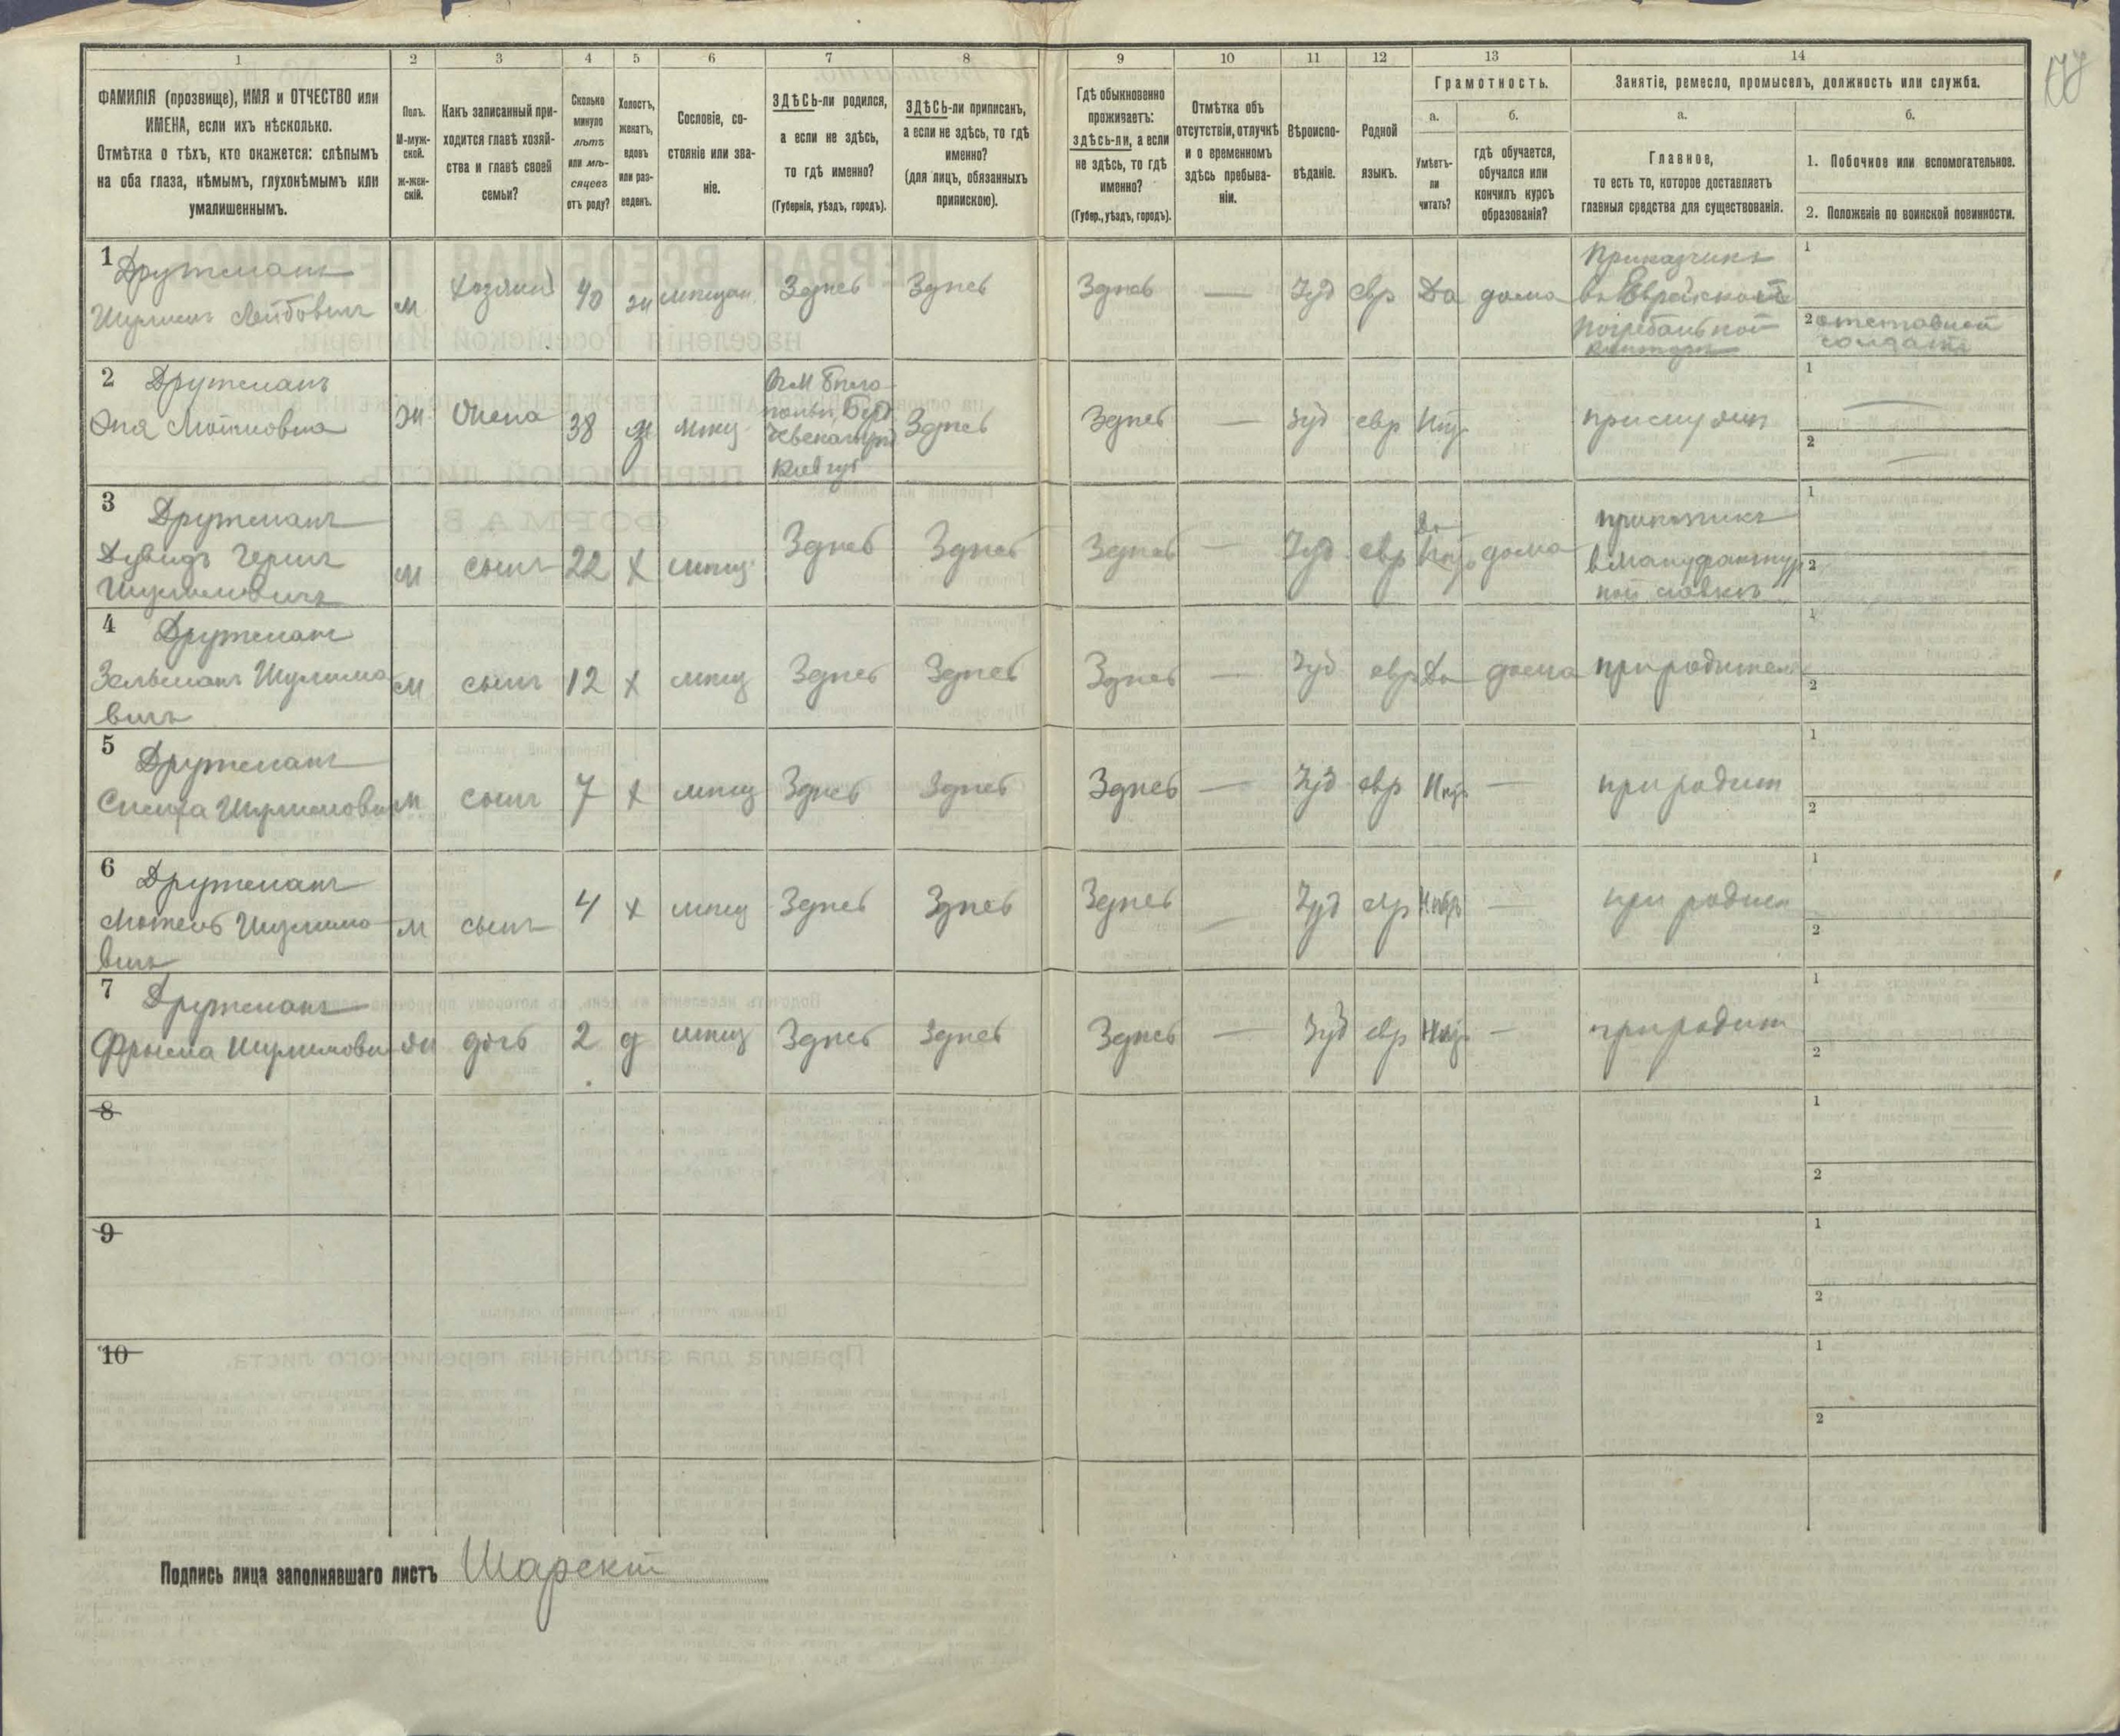 1 2 3 4 5 6 7 8 9 10 11 12 13 14
ФАМИЛІЯ (прозвище), ИМЯ и ОТЧЕСТВО или
ИМЕНА, если ихъ нѣсколько.
Отмѣтка о тѣхъ, кто окажется: слѣпымъ
на оба глаза, нѣмымъ, глухонѣмымъ или
умалишеннымъ.
Полъ.
М-муж-
ской.
Ж-жен-
скій.
Какъ записанный при-
ходится главѣ хозяй-
ства и главѣ своей
семьи?
Сколько
минуло
лѣтъ
или мѣ-
сяцевъ
отъ роду?
Холостъ,
женатъ,
вдовъ
или раз-
веденъ.
Сословіе, со-
стояніе или зва-
ніе.
ЗДѢСЬ-ли родился,
а если не здѣсь,
то гдѣ именно?
(Губернія, уѣздъ, городъ).
ЗДѢСЬ-ли приписанъ,
а если не здѣсь, то гдѣ
именно?
(для лицъ, обязанныхъ
припискою).
Гдѣ обыкновенно
проживаетъ:
здѣсь-ли, а если
не здѣсь, то гдѣ
именно?
(Губер., уѣздъ, городъ).
Отмѣтка объ
отсутствіи, отлучкѣ
и о временномъ
здѣсь пребыва-
ніи.
Вѣроиспо-
вѣданіе.
Родной
языкъ.
Грамотность.
а.
Умѣетъ-
ли
читать?
б.
гдѣ обучается,
обучался или
кончилъ курсъ
образованія?
Занятіе, ремесло, промыселъ, должность или служба.
а.
Главное,
то есть то, которое доставляетъ
главныя средства для существованія.
б.
1. Побочное или вспомогательное.
2. Положеніе по воинской повинности.
1 Дружманъ
Шулимъ Лейбовичъ м хозяинъ 40 ж мѣщан Здѣсь Здѣсь Здѣсь — Iуд евр Да дома
Приказчикъ
въ Еврейской
погребальной
конторѣ
1
2 отставной
солдатъ
2 Дружманъ
Мотьковна ж жена 38 з мѣщ Здѣсь Здѣсь — Iуд евр Нѣт при муж
Кіев губ
1
2
3 Дружманъ
Дувидъ Гершъ
Шулимовичъ м сынъ 22 х мѣщ Здѣсь Здѣсь Здѣсь — Iуд евр Да дома
приказчикъ
въ мануфактур
ной лавкѣ
1
2
4 Дружманъ
Зельманъ Шулимо
вичъ м сынъ 12 х мѣщ Здѣсь Здѣсь Здѣсь — Iуд евр Да дома при родител
1
2
5 Дружманъ
Шулимови м сынъ 7 х мѣщ Здѣсь Здѣсь Здѣсь — Iуд евр Нѣт — при родит
1
2
6 Дружманъ
Мотель Шулимо-
вичъ м сынъ 4 х мѣщ Здѣсь Здѣсь Здѣсь — Iуд евр — при родит
1
2
7 Дружманъ
Фрыма Шулимовн ж дочь 2 д мѣщ Здѣсь Здѣсь Здѣсь — Iуд евр Нѣт — при родит
1
2
8
1
2
9
1
2
10
1
2
Подпись лица заполнявшаго листъ Шарскій